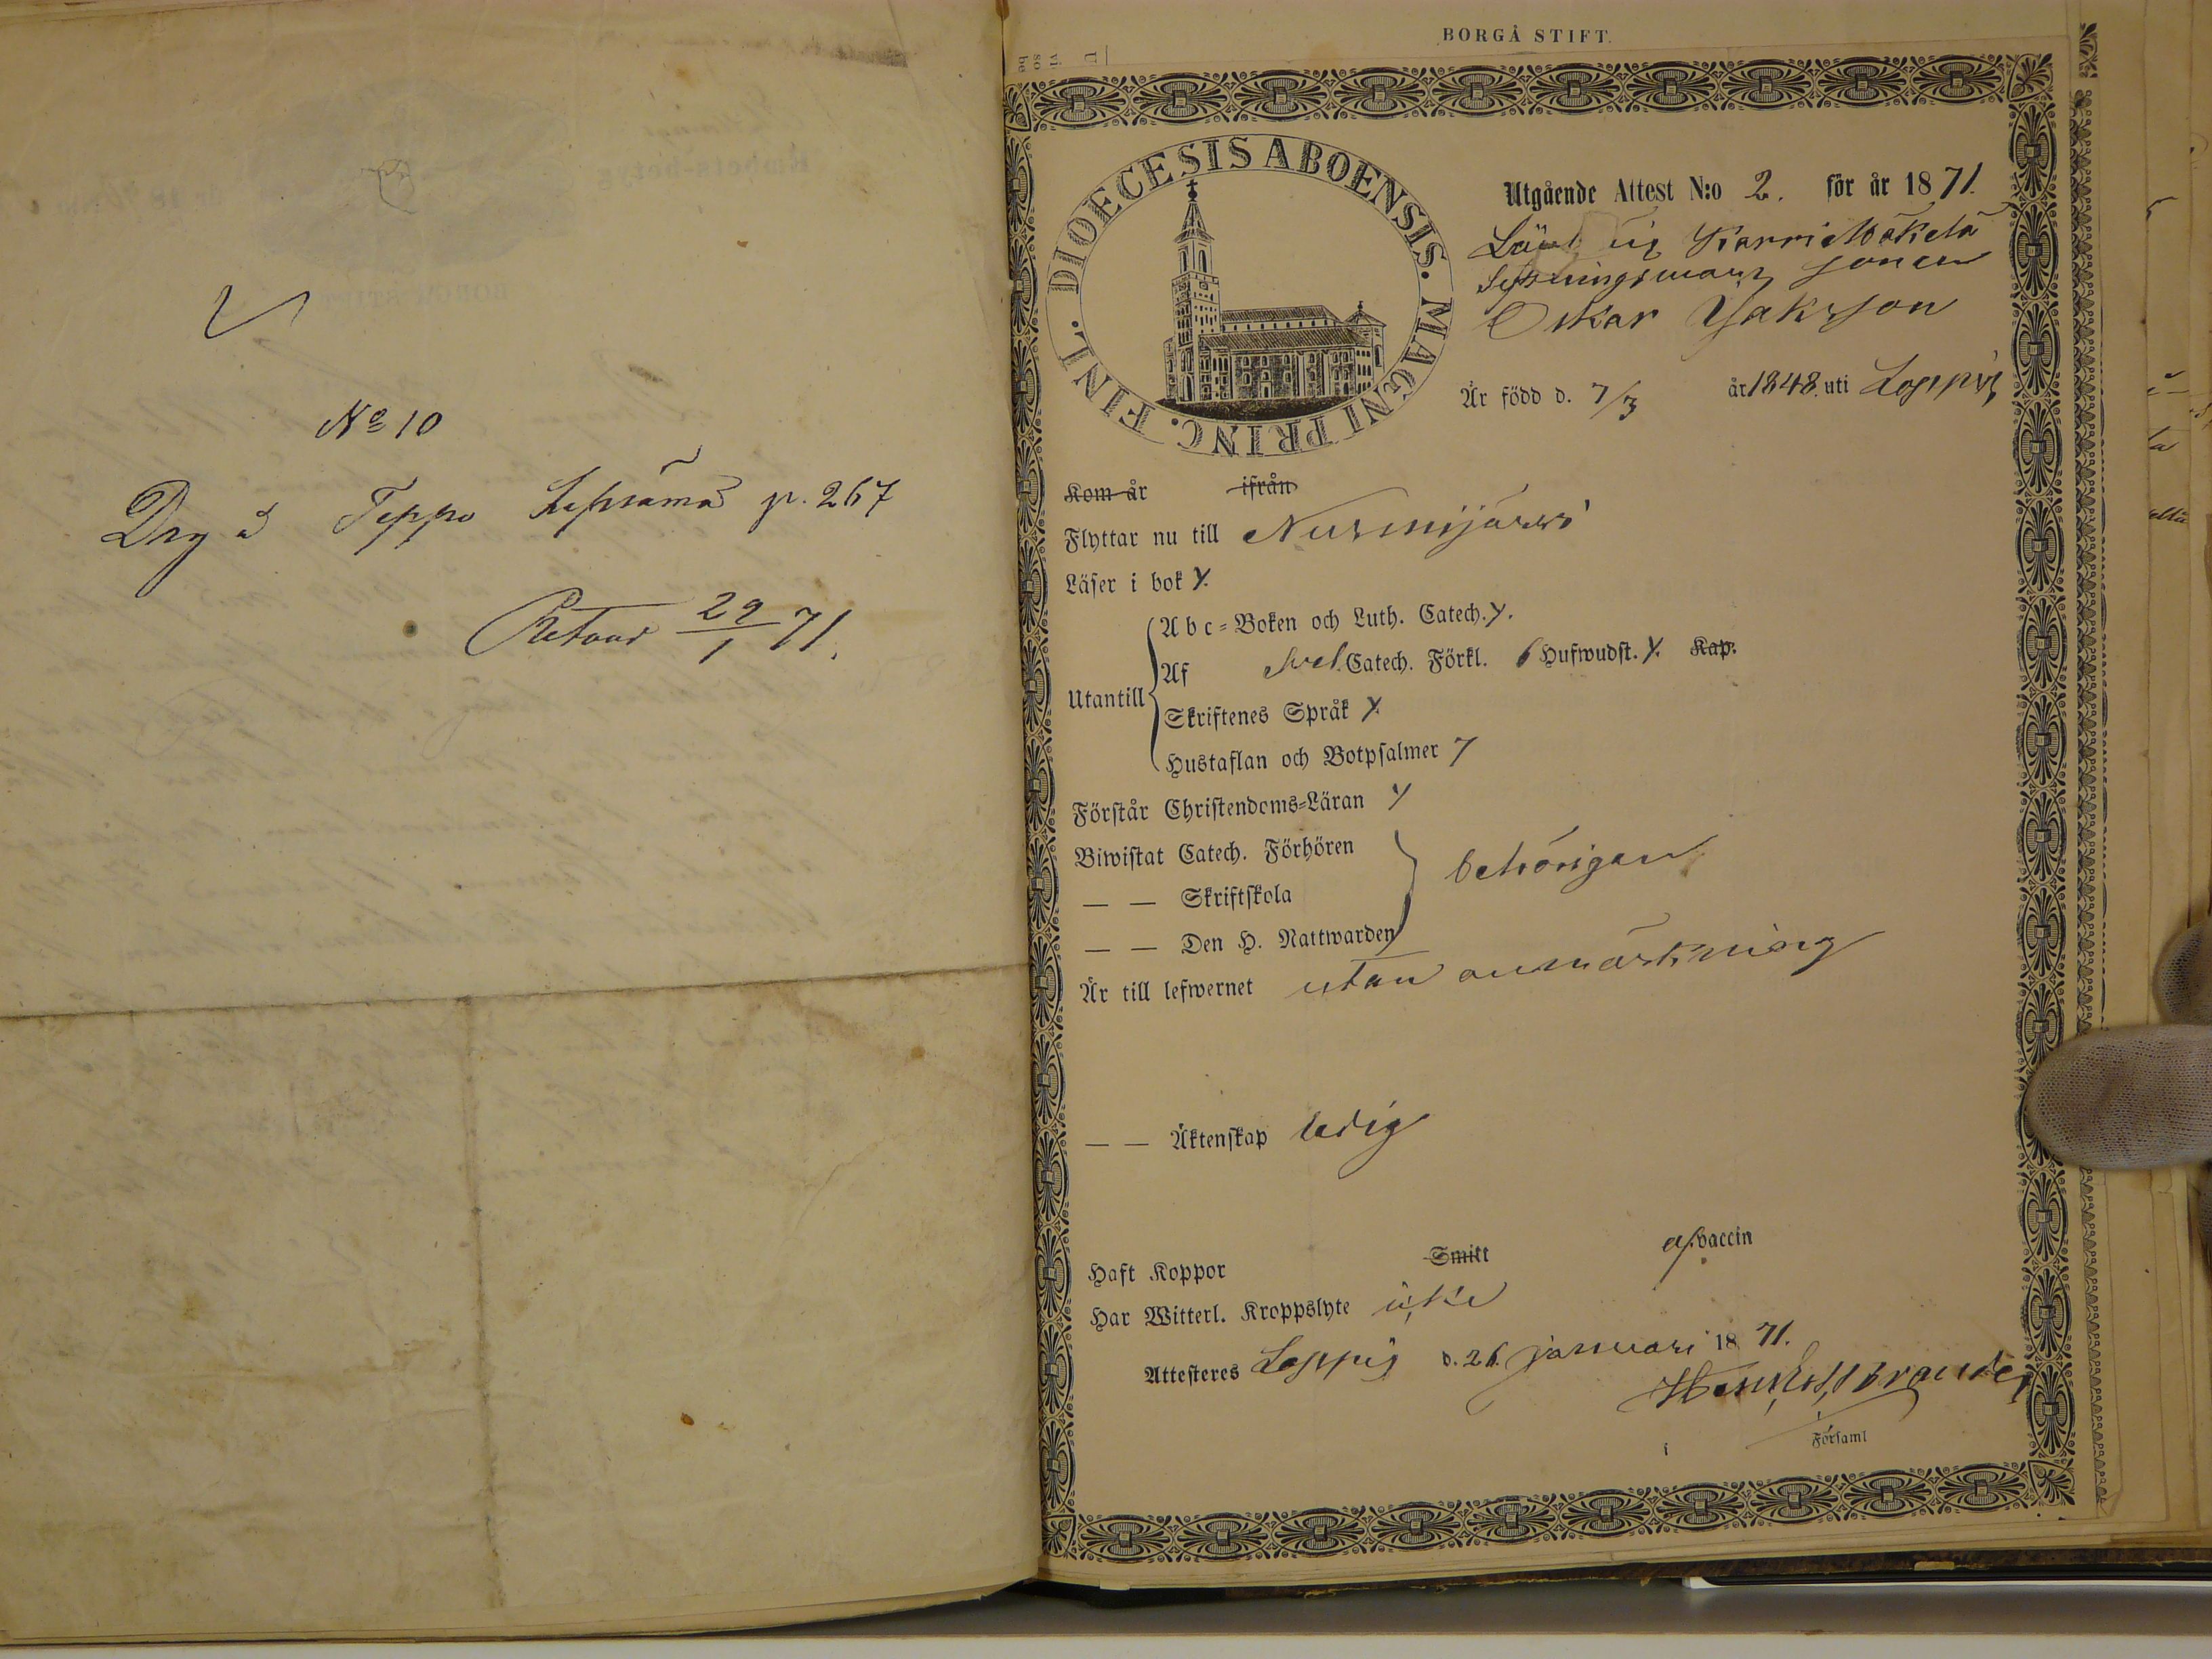 No 10
Drg å Teppo Lepsämä p. 267
Retour 29/1 71.
BORGÅ STIFT.
DIOECESIS ABOENSIS. MAGNI PRINC. FINL.
Utgående Attest N:o 2. för år 1871.
Karrie Mäkelä
sonen
Oskar Jaksson
Är född d. 7/3 år 1848. uti Loppis
Kom år ifrån
Flyttar nu till Nurmijärwi
Läser i bok y.
Utantill
Abc-Boken och Luth. Catech. y.
Af Svel. Catech. Förkl. 6 Hufwudst. y. Kap.
Skriftenes Språk y.
Hustaflan och Botpsalmer 7
Förstår Christendoms-Läran y
Biwistat Catech. Förhören
— — Skriftskola behörigen
— — Den H. Nattwarden
Är till lefwernet utan anmärkning
— — Äktenskap ledig
Haft Koppor Smitt af vaccin
Har Witterl. Kroppslyte icke
Attesteres Loppis d. 26. januari 1871.
i Församl